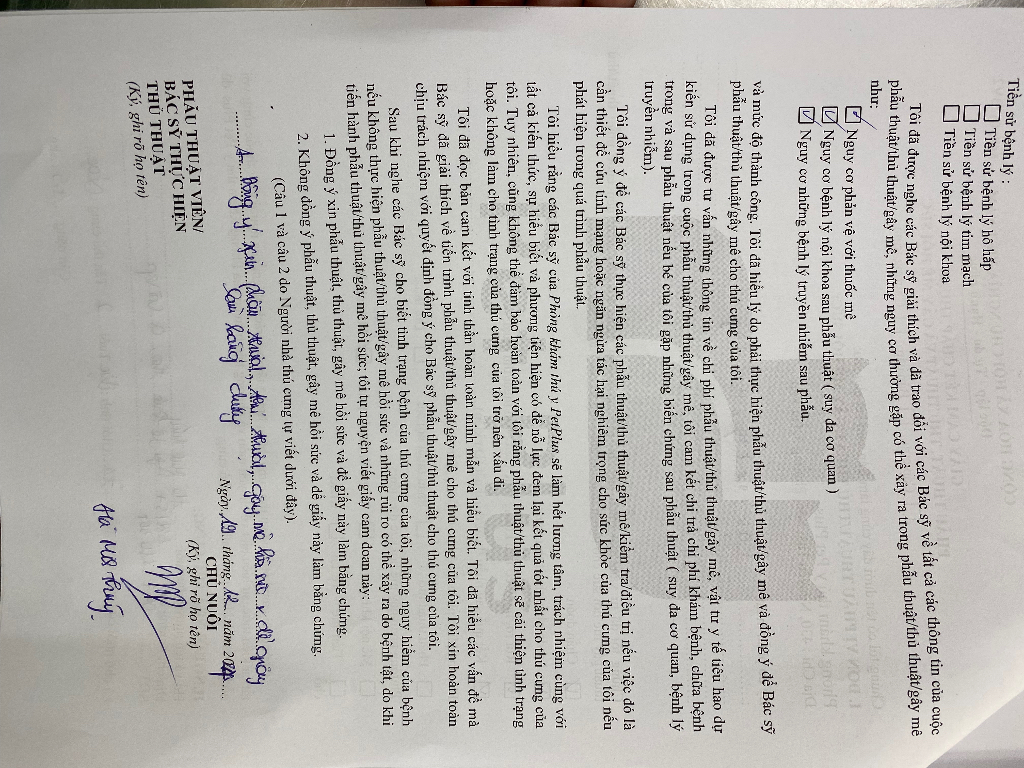 Tiền sử bệnh lý :
Tiền sử bệnh lý hô hấp
Tiền sử bệnh lý tim mạch
Tiền sử bệnh lý nội khoa
Tôi đã được nghe các Bác sỹ giải thích và đã trao đổi với các Bác sỹ về tất cả các thông tin của cuộc
phẫu thuật/thủ thuật/gây mê, những nguy cơ thường gặp có thể xảy ra trong phẫu thuật/thủ thuật/gây mê
như:
Nguy cơ phản vệ với thuốc mê
Nguy cơ bệnh lý nội khoa sau phẫu thuật ( suy đa cơ quan )
Nguy cơ những bệnh lý truyền nhiễm sau phẫu.
và mức độ thành công. Tôi đã hiểu lý do phải thực hiện phẫu thuật/thủ thuật/gây mê và đồng ý để Bác sỹ
phẫu thuật/thủ thuật/gây mê cho thú cưng của tôi.
Tôi đã được tư vấn những thông tin về chi phí phẫu thuật/thủ thuật/gây mê, vật tư y tế tiêu hao dự
kiến sử dụng trong cuộc phẫu thuật/thủ thuật/gây mê, tôi cam kết chi trả chi phí khám bệnh, chữa bệnh
trong và sau phẫu thuật nếu bé của tôi gặp những biến chứng sau phẫu thuật ( suy đa cơ quan, bệnh lý
truyền nhiễm).
Tôi đồng ý để các Bác sỹ thực hiện các phẫu thuật/thủ thuật/gây mê/kiểm tra/điều trị nếu việc đó là
cần thiết để cứu tính mạng hoặc ngăn ngừa tác hại nghiêm trọng cho sức khỏe của thú cưng của tôi nếu
phát hiện trong quá trình phẫu thuật.
Tôi hiểu rằng các Bác sỹ của Phòng khám thú y PetPlus sẽ làm hết lương tâm, trách nhiệm cùng với
tất cả kiến thức, sự hiểu biết và phương tiện hiện có để nỗ lực đem lại kết quả tốt nhất cho thú cưng của
tôi. Tuy nhiên, cũng không thể đảm bảo hoàn toàn với tôi rằng phẫu thuật/thủ thuật sẽ cải thiện tình trạng
hoặc không làm cho tình trạng của thú cưng của tôi trở nên xấu đi.
Tôi đã đọc bản cam kết với tinh thần hoàn toàn minh mẫn và hiểu biết. Tôi đã hiểu các vấn đề mà
Bác sỹ đã giải thích về tiến trình phẫu thuật/thủ thuật/gây mê cho thú cưng của tôi. Tôi xin hoàn toàn
chịu trách nhiệm với quyết định đồng ý cho Bác sỹ phẫu thuật/thủ thuật cho thú cưng của tôi.
Sau khi nghe các Bác sỹ cho biết tình trạng bệnh của thú cưng của tôi, những nguy hiểm của bệnh
nếu không thực hiện phẫu thuật/thủ thuật/gây mê hồi sức và những rủi ro có thể xảy ra do bệnh tật, do khi
tiến hành phẫu thuật/thủ thuật/gây mê hồi sức; tôi tự nguyện viết giấy cam đoan này:
1. Đồng ý xin phẫu thuật, thủ thuật, gây mê hồi sức và để giấy này làm bằng chứng.
2. Không đồng ý phẫu thuật, thủ thuật, gây mê hồi sức và để giấy này làm bằng chứng.
(Câu 1 và câu 2 do Người nhà thú cưng tự viết dưới đây).
1. Đồng ý xin phẫu thuật, thủ thuật, gây mê hồi sức và để giấy
làm bằng chứng
Ngày 19 tháng 12 năm 2024
PHẪU THUẬT VIÊN/
BÁC SỸ THỰC HIỆN
THỦ THUẬT
(Ký, ghi rõ họ tên)
CHỦ NUÔI
(Ký, ghi rõ họ tên)